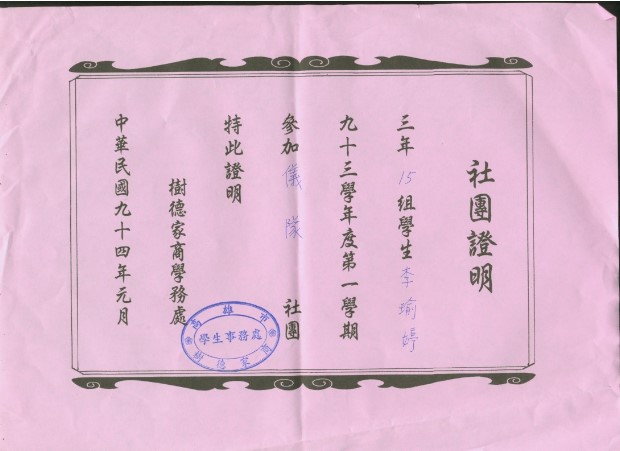 社團證明
三年15組學生李瑜婷
九十三學年度第一學期
參加儀隊社團
特此證明
樹德家商學務處
中華民國九十四年元月
高雄市
學生事務處
樹德家商